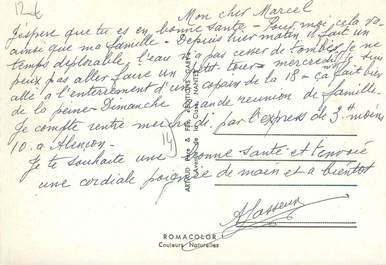 Mon cher Marcel
J'espère que tu es en bonne santé - Pour moi cela va
ainsi que ma famille - Depuis hier matin il fait un
temps déplorable, l'eau n'a pas cesser de tomber, je ne
peux pas aller faire un petit tour - mercredi je suis
allé à l'enterrement d'une copain de la 18 - ça fait bien
de la peine - Dimanche grande réunion de famille.
Je compte rentré mercredi par l'express de 3H moins
10. à Alençon.
Je te souhaite une bonne santé et t'envoie
une cordiale poignée de main et à bientôt
ROMACOLOR
Couleurs Naturelles